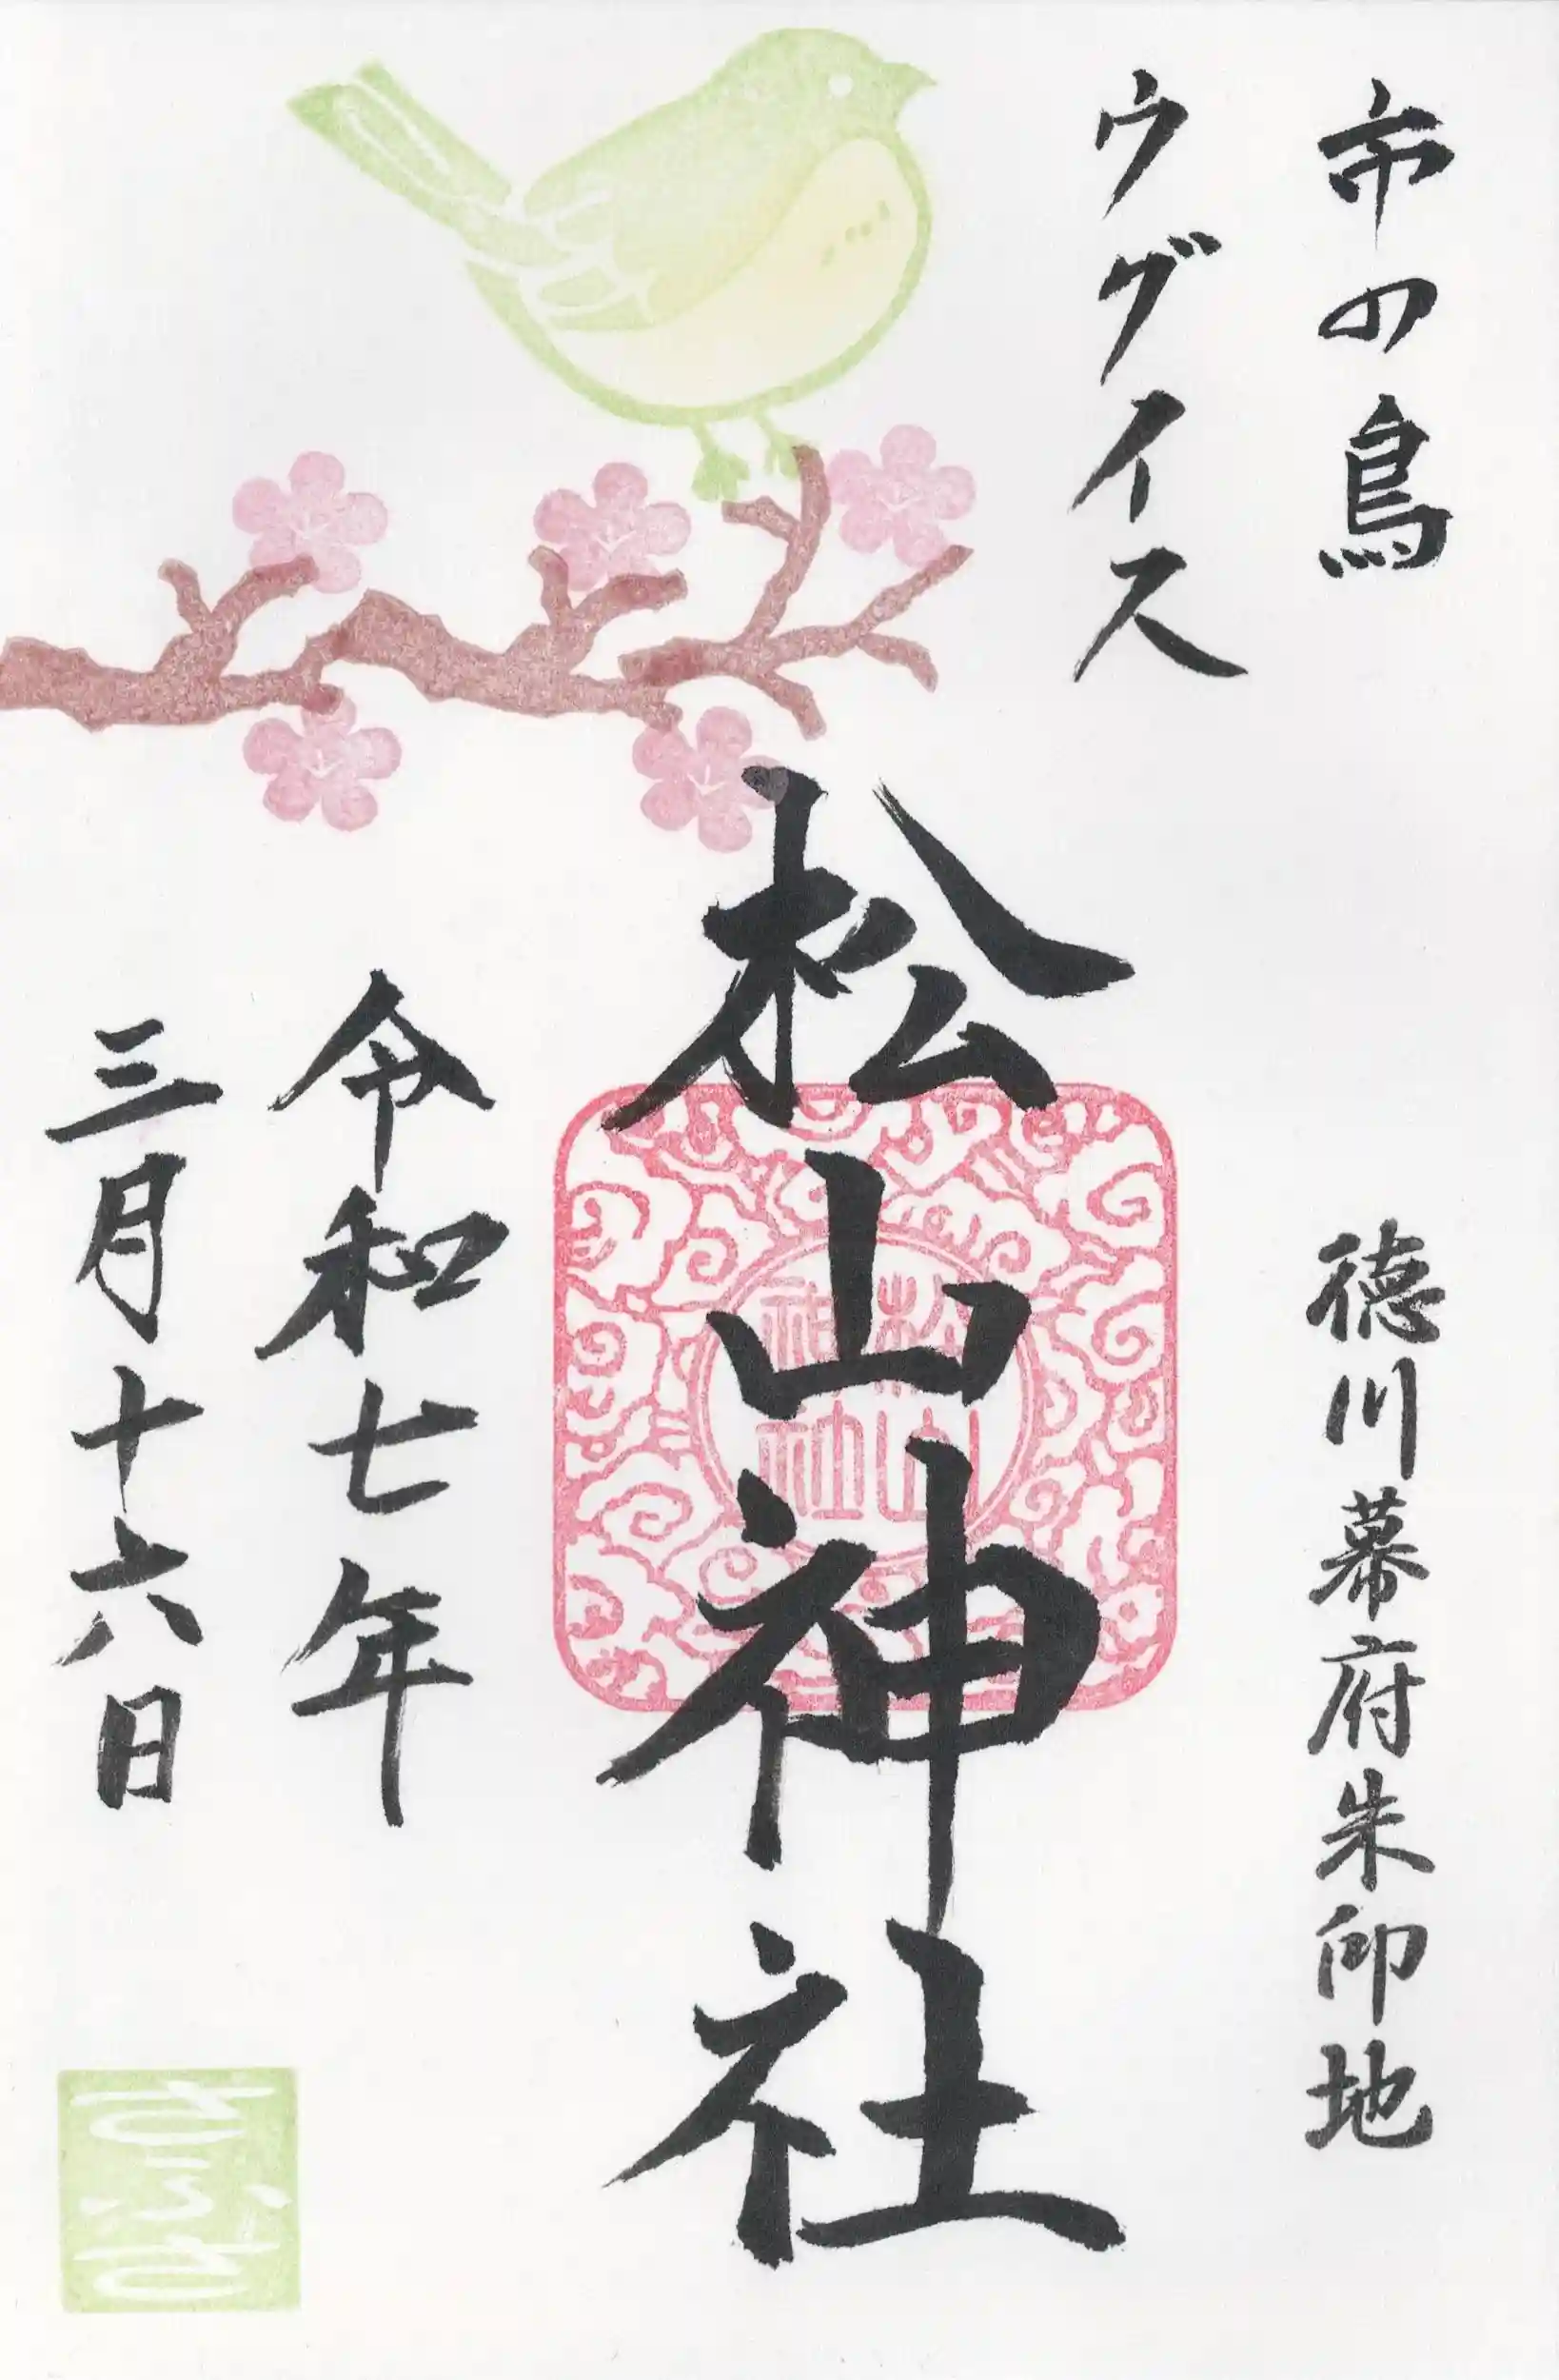 市の鳥
ウグイス
徳川幕府朱印地
松山神社
松山
神社
令和七年
三月十六日